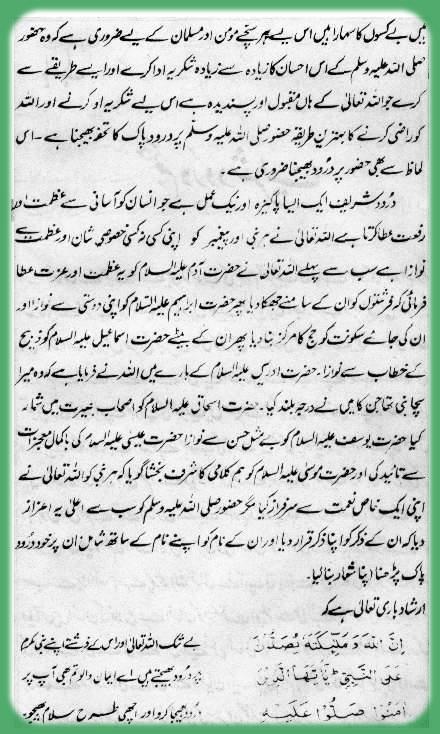 ہیں بے کسوں کا سہارا ہیں اس لیے ہر سچے مومن اور مسلمان کے لیے ضروری ہے کہ وہ حضور
صلی اللہ علیہ وسلم کے اس احسان کا زیادہ سے زیادہ شکریہ ادا کرے اور ایسے طریقے سے
کرے جو اللہ تعالیٰ کے ہاں مقبول اور پسندیدہ ہے اس لیے شکریہ ادا کرنے اور اللہ
کو راضی کرنے کا بہترین طریقہ حضور صلی اللہ علیہ وسلم پر درود پاک کا تحفہ بھیجنا ہے ۔ اس
لحاظ سے بھی حضور پر درود بھیجنا ضروری ہے ۔
درود شریف ایک ایسا پاکیزہ اور نیک عمل ہے جو انسان کو آسانی سے عظمت اور
رفعت عطا کرتا ہے اللہ تعالیٰ نے ہر نبی اور پیغمبر کو اپنی کسی نہ کسی خصوصی شان اور عظمت سے
نوازا ہے سب سے پہلے اللہ تعالیٰ نے حضرت آدم علیہ السلام کو یہ عظمت اور عزت عطا
فرمائی کہ فرشتوں کو ان کے سامنے جھکا دیا پھر حضرت ابراہیم علیہ السلام کو اپنی دوستی سے نوازا اور
ان کی جائے سکونت کو حج کا مرکز بنا دیا پھر ان کے بیٹے حضرت اسماعیل علیہ السلام کو ذبیح
کے خطاب سے نوازا ۔ حضرت ادریس علیہ السلام کے بارے میں اللہ نے فرمایا ہے کہ وہ میرا
سچا نبی تھا جن کا میں نے درجہ بلند کیا ۔ حضرت اسحاق علیہ السلام کو اصحاب بصیرت میں شمار
کیا حضرت یوسف علیہ السلام کو بے مثل حسن سے نوازا حضرت عیسیٰ علیہ السلام کی باکمال معجزات
سے تائید کی اور حضرت موسیٰ علیہ السلام کو ہم کلامی کا شرف بخشا گویا کہ ہر نبی کو اللہ تعالیٰ نے
اپنی ایک خاص نعمت سے سرفراز کیا مگر حضور صلی اللہ علیہ وسلم کو سب سے اعلیٰ یہ اعزاز
دیا کہ ان کے ذکر کو اپنا ذکر قرار دیا اور ان کے نام کو اپنے نام کے ساتھ شامل ان پر خود درود
پاک پڑھنا اپنا شعار بنا لیا ۔
ارشاد باری تعالیٰ ہے کہ
اِنَّ اللّٰهَ وَ مَلٰٓئِكَتَهٗ يُصَلُّوْنَ
عَلَى النَّبِيِّ يٰٓاَيُّهَا الَّذِيْنَ
اٰمَنُوْا صَلُّوْا عَلَيْهِ
بے شک اللہ تعالیٰ اور اس کے فرشتے اپنے نبی مکرم
پر درود بھیجتے ہیں اے ایمان والو تم بھی آپ پر
درود بھیجا کرو اور اچھی طرح سلام بھیجو